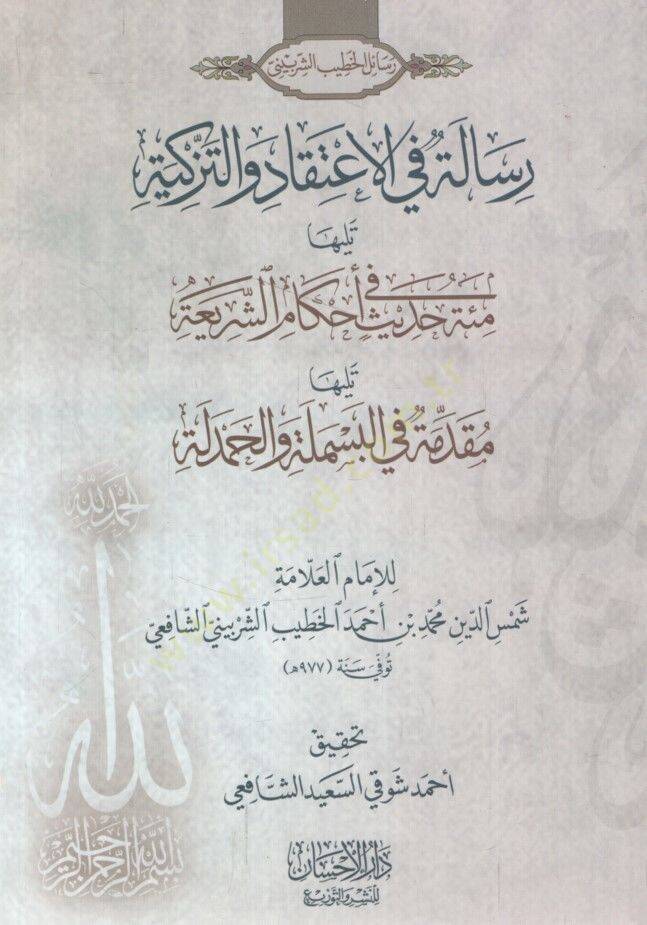 رسائل الخطيب الشربيني
رِسَالَةٌ فِي الاِعْتِقَادِ وَالتَّزْكِيَةِ
تَلِيهَا
مِئَةُ حَدِيثٍ فِي أَحْكَامِ الشَّرِيعَةِ
تَلِيهَا
مُقَدِّمَةٌ فِي البَسْمَلَةِ وَالحَمْدَلَةِ
لِلإِمَامِ العَلَّامَةِ
شَمْسِ الدِّينِ مُحَمَّد بْنِ أَحْمَدَ الخَطِيبِ الشِّرْبِينِيِّ الشَّافِعِيِّ
تُوُفِّيَ سَنَة (٩٧٧هـ)
تحقيق
أحمد شوقي السعيد الشافعي
دار الإحسان
للنشر والتوزيع
الحمد لله
لله
بسم الله الرحمن الرحيم
www.irsad.com.tr